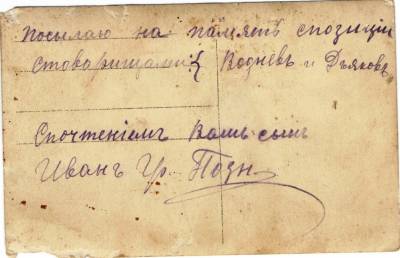 Посылаю на память спозиціи
стоварищами { Воднев и Дъяковъ
Спочтеніемъ Вашъ сынъ
Иванъ Гр. Позн.